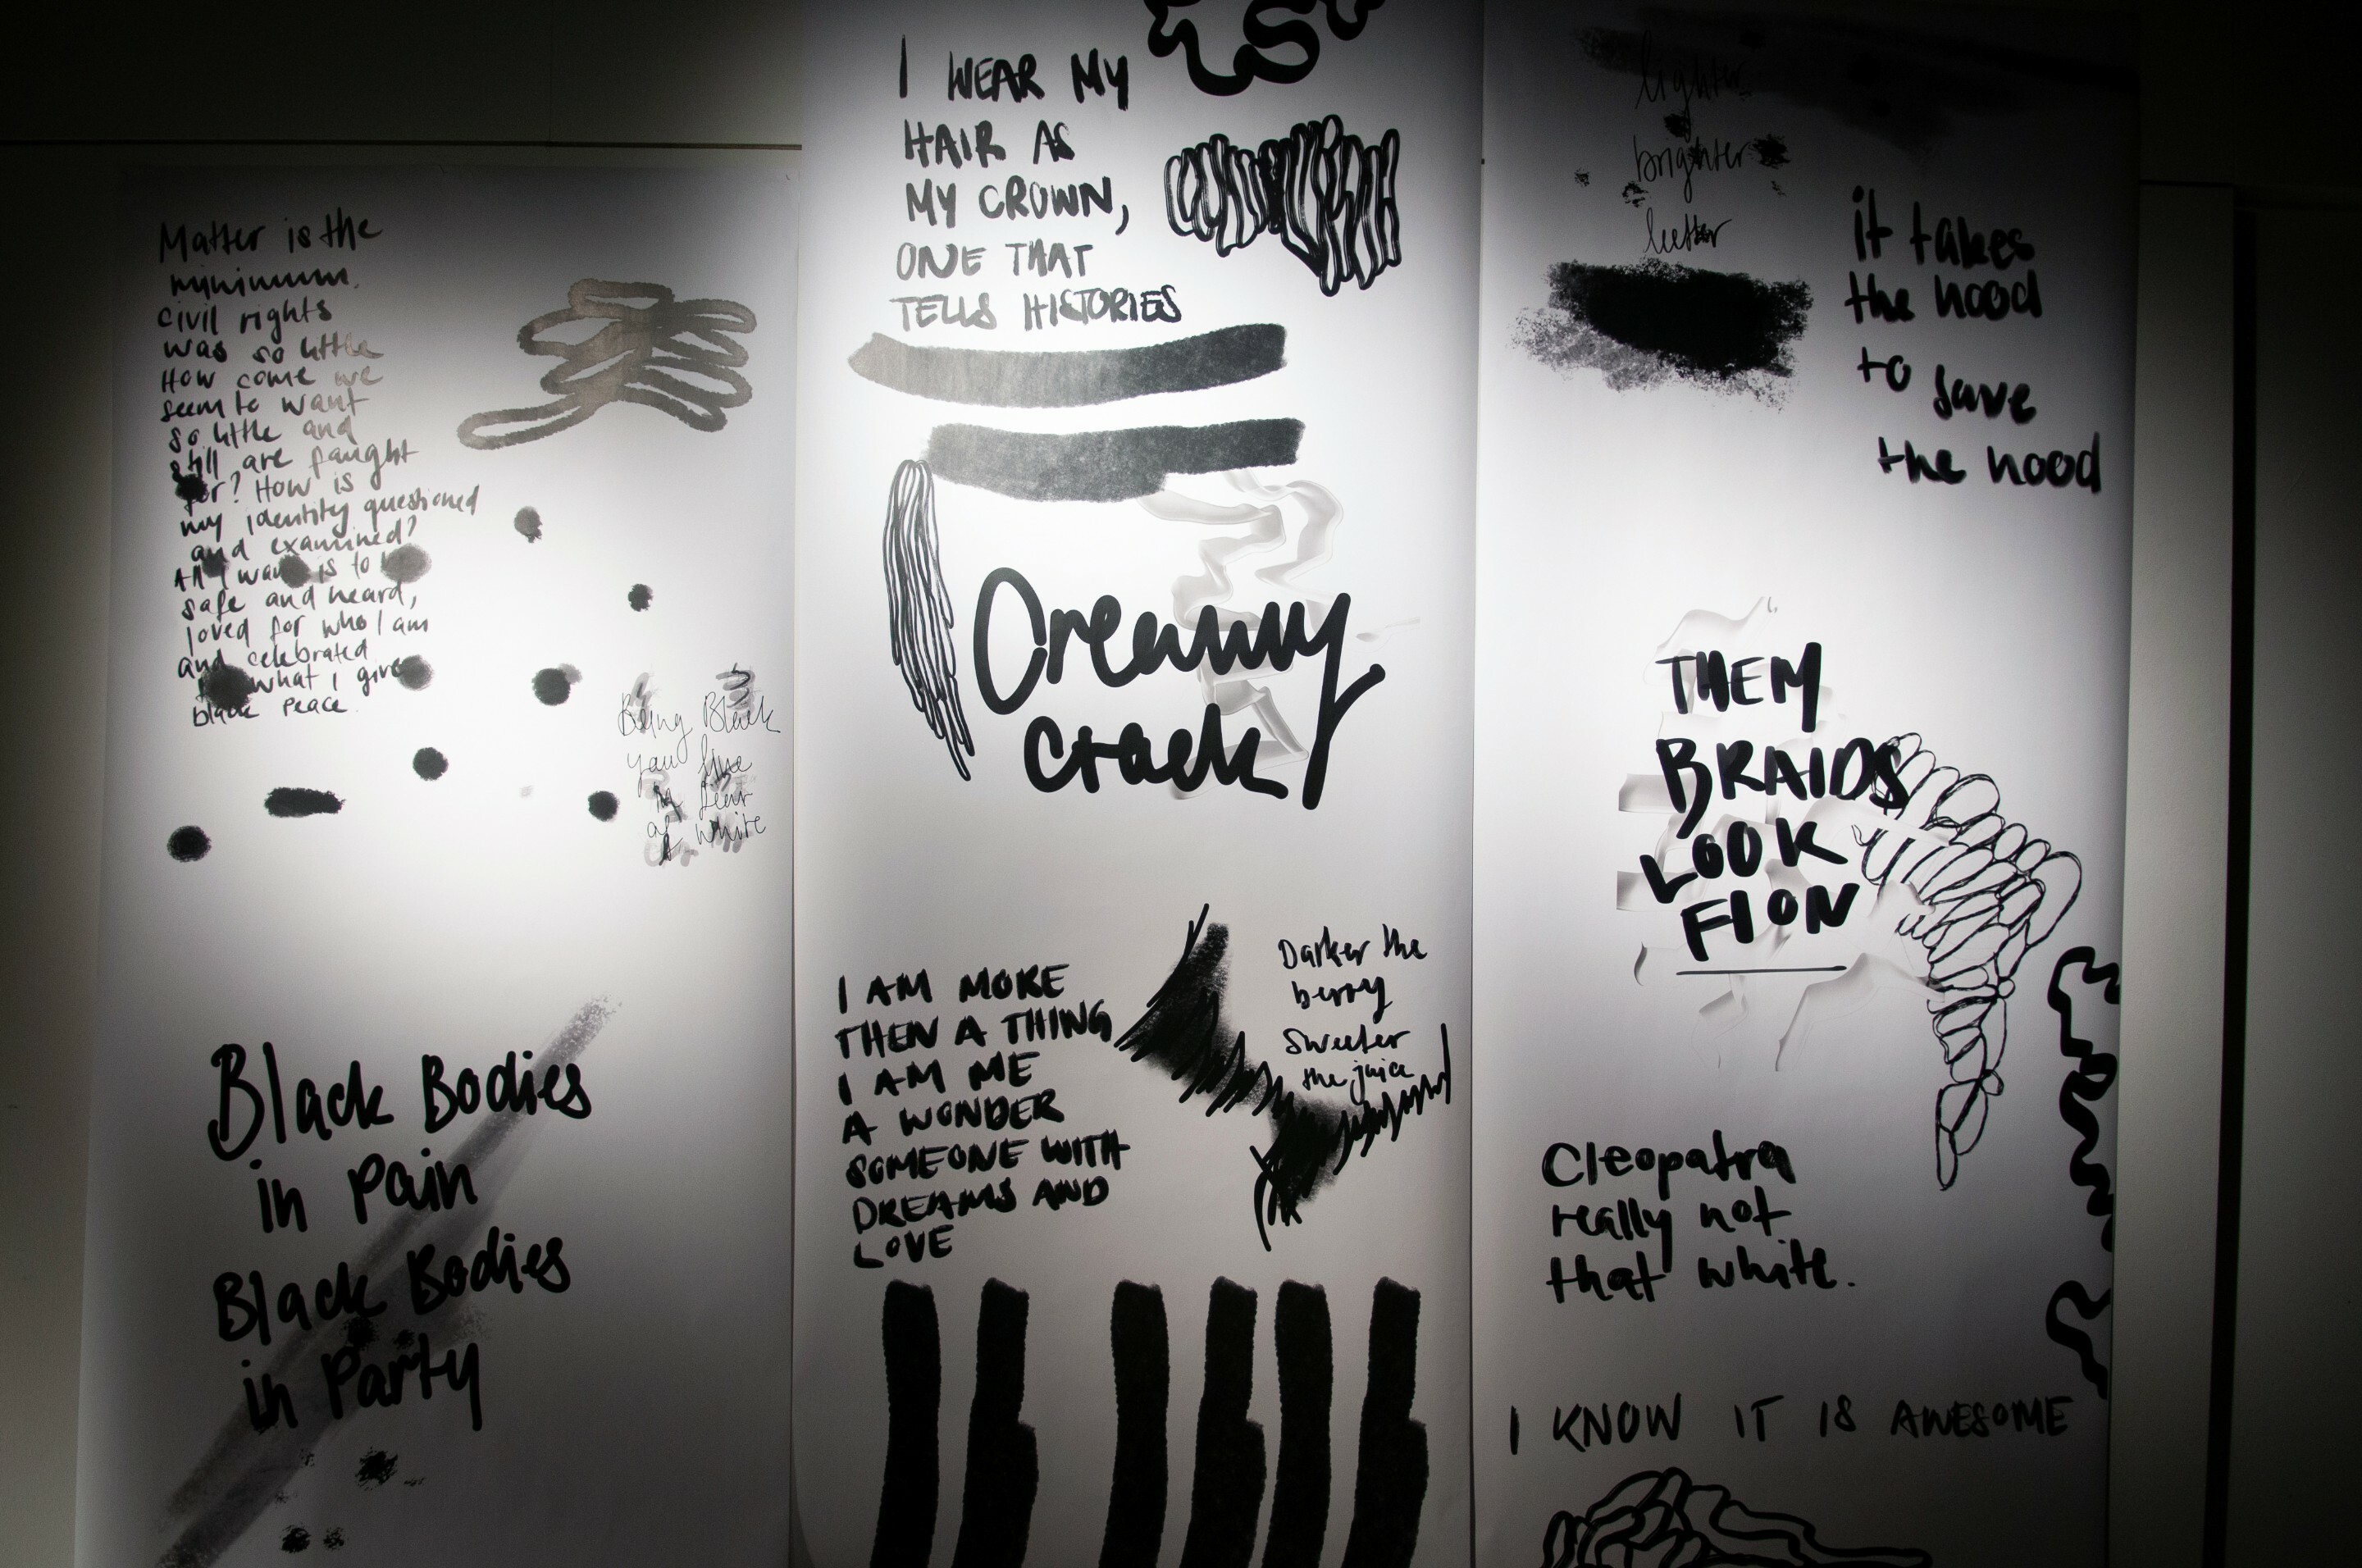 Matter is the
minimum.
civil rights
was so little
How come we
seem to want
so little and
still are faught
for? How is
my identity questioned
and examined?
All I want is to
safe and heard,
loved for who I am
and celebrated
what I give
black peace.
Being Black
you live
in fear
of white
Black Bodies
in Pain
Black Bodies
in Party
I WEAR MY
HAIR AS
MY CROWN,
ONE THAT
TELLS HISTORIES
Creamy
crack
I AM MORE
THEN A THING
I AM ME
A WONDER
SOMEONE WITH
DREAMS AND
LOVE
Darker the
berry
Sweeter
the juice
lighter
brighter
it takes
the hood
to save
the hood
THEM
BRAIDS
LOOK
FION
Cleopatra
really not
that white.
I KNOW IT IS AWESOME